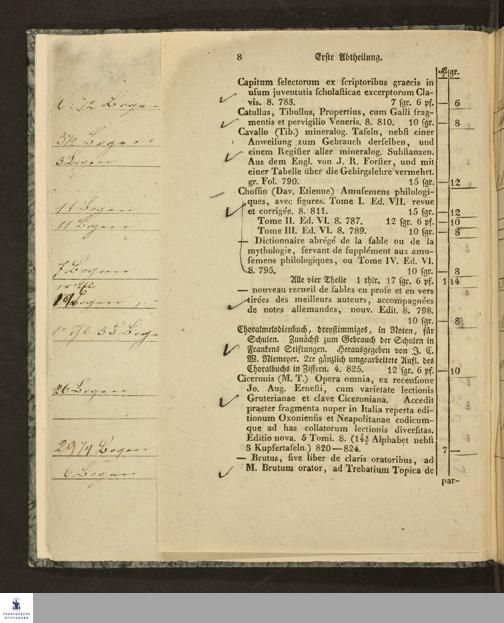 8 Erste Abtheilung.
₰ gr.
Capitum selectorum ex scriptoribus graecis in
usum juventutis scholasticae excerptorum Cla-
vis. 8. 783. 7 sgr. 6 pf. — 6
Catullus, Tibullus, Propertius, cum Galli frag-
mentis et pervigilio Veneris. 8. 810. 10 sgr. — 8
Cavallo (Tib.) mineralog. Tafeln, nebst einer
Anweisung zum Gebrauch derselben, und
einem Register aller mineralog. Substanzen.
Aus dem Engl. von J. R. Forster, und mit
einer Tabelle über die Gebirgslehre vermehrt.
gr. Fol. 790. 15 sgr. — 12
Choffin (Dav. Etienne) Amusemens philologi-
ques, avec figures. Tome I. Ed. VII. revue
et corrigée. 8. 811. 15 sgr. — 12
Tome II. Ed. VI. 8. 787. 12 sgr. 6 pf. — 10
Tome III. Ed. VI. 8. 789. 10 sgr. — 8
— Dictionnaire abrégé de la fable ou de la
mythologie, servant de supplément aux amu-
semens philologiques, ou Tome IV. Ed. VI.
8. 795. 10 sgr. — 8
Alle vier Theile 1 thlr. 17 sgr. 6 pf. 1 14
— nouveau recueil de fables en prose et en vers
tirées des meilleurs auteurs, accompagnées
de notes allemandes, nouv. Edit. 8. 798.
10 sgr. — 8
Choralmelodienbuch, dreystimmiges, in Noten, für
Schulen. Zunächst zum Gebrauch der Schulen in
Frankens Stiftungen. Herausgegeben von J. C.
W. Niemeyer. 2te gänzlich umgearbeitete Aufl. des
Choralbuchs in Ziffern. 4. 825. 12 sgr. 6 pf. — 10
Ciceronis (M. T.) Opera omnia, ex recensione
Jo. Aug. Ernesti, cum varietate lectionis
Gruterianae et clave Ciceroniana. Accedit
praeter fragmenta nuper in Italia reperta edi-
tionum Oxoniensis et Neapolitanae codicum-
que ad has collatorum lectionis diversitas.
Editio nova. 5 Tomi. 8. (14 Alphabet nebst
8 Kupfertafeln.) 820—824. 7 —
— Brutus, sive liber de claris oratoribus, ad
M. Brutum orator, ad Trebatium Topica de
par-
6 1/2 Bogen
3 1/2 Bogen
3 Bogen
11 Bogen
11 Bogen
7 Bogen
19 Bogen
26 Bogen
29 1/4 Bogen
6 Bogen
FRANCKESCHE
STIFTUNGEN